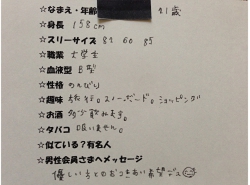 ☆なまえ・年齢 21歳
☆身長 158cm
☆スリーサイズ 83 60 85
☆職業 大学生
☆血液型 B型
☆性格 のんびり
☆趣味 旅行。スノーボード。ショッピング
☆お酒 多少飲めます。
☆タバコ 吸いません。
☆似ている？有名人
☆男性会員さまへメッセージ
優しい方とのおつきあい希望です